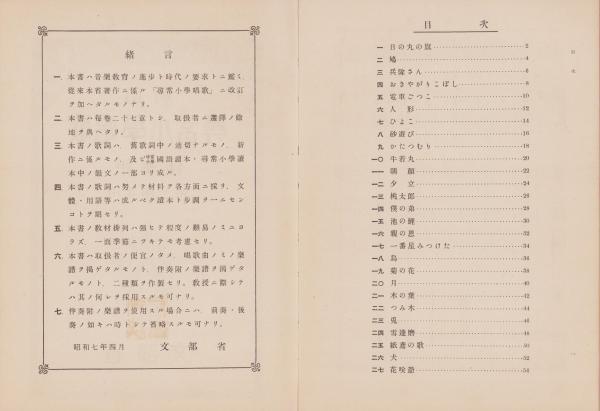 緒言
一、本書ハ音樂敎育ノ進步ト時代ノ要求トニ鑑ミ、
從來本省著作ニ係ル「尋常小學唱歌」ニ改訂
ヲ加ヘタルモノナリ。
二、本書ハ每卷二十七章トシ、取扱者ニ選擇ノ餘
地ヲ與ヘタリ。
三、本書ノ歌詞ハ、舊歌詞中ノ適切ナルモノ、新
作ニ係ルモノ、及ビ國語讀本・尋常小學讀
本中ノ韻文ノ一部ヨリ成ル。
四、本書ノ歌詞ハ努メテ材料ヲ各方面ニ採リ、文
體・用語等ハ成ルベク讀本ト步調ヲ一ニセン
コトヲ期セリ。
五、本書ノ敎材排列ハ强ヒテ程度ノ難易ノミニヨ
ラズ、一面季節ニツキテモ考慮セリ。
六、本書ハ取扱者ノ便宜ノタメ、唱歌曲ノミノ樂
譜ヲ揭ゲタルモノト、伴奏附ノ樂譜ヲ揭ゲタ
ルモノト、二種類ヲ作製セリ。敎授ニ際シテ
ハ其ノ何レヲ採用スルモ可ナリ。
七、伴奏附ノ樂譜ヲ使用スル場合ニハ、前奏・後
奏ノ如キハ時トシテ省略スルモ可ナリ。
昭和七年四月 文部省
目次
一 日の丸の旗 2
二 鳩 4
三 兵隊さん 6
四 おきやがりこぼし 8
五 電車ごつこ 10
六 人形 12
七 ひよこ 14
八 砂遊び 16
九 かたつむり 18
一〇 牛若丸 20
一一 朝顏 22
一二 夕立 24
一三 桃太郎 26
一四 僕の弟 28
一五 池の鯉 30
一六 親の恩 32
一七 一番星みつけた 34
一八 烏 36
一九 菊の花 38
二〇 月 40
二一 木の葉 42
二二 つみ木 44
二三 兎 46
二四 雪達磨 48
二五 紙鳶の歌 50
二六 犬 52
二七 花咲爺 54
目次